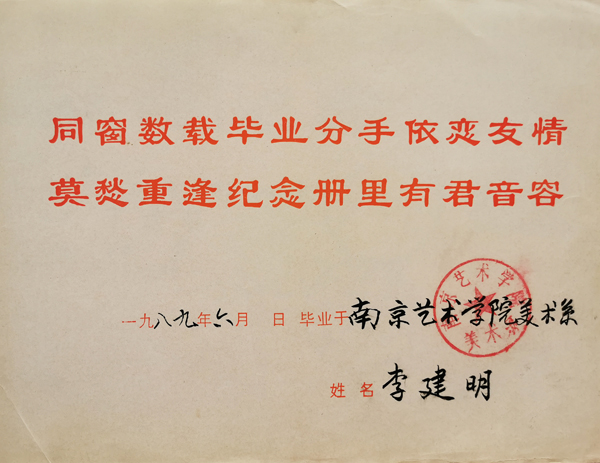 同窗数载毕业分手依恋友情
莫愁重逢纪念册里有君音容
一九八九年六月 日 毕业于南京艺术学院美术系
南京艺术学院
美术系
姓名 李建明